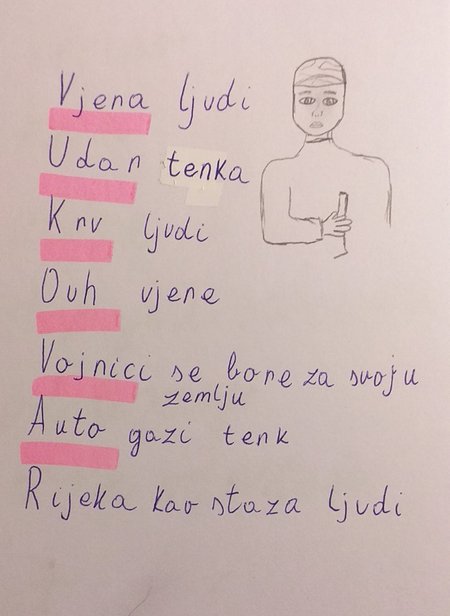 Vjera ljudi
Udar tenka
Krv ljudi
Duh vjere
Vojnici se bore za svoju
zemlju
Auto gazi tenk
Rijeka kao staza ljudi